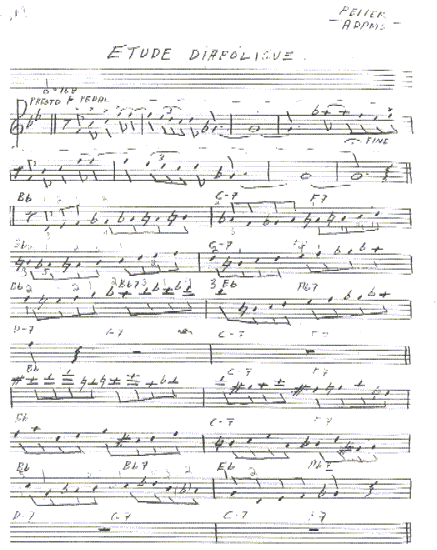 PEPPER
ADAMS
ETUDE DIABOLIQUE
PRESTO F PEDAL
FINE
Bb C-7 F7
Bb C-7 F7
Bb Bb7 Eb Ab7
D-7 G-7 C-7 F7
Bb C-7 F7
Bb C-7 F7
Bb Bb7 Eb Ab7
D-7 G-7 C-7 F7